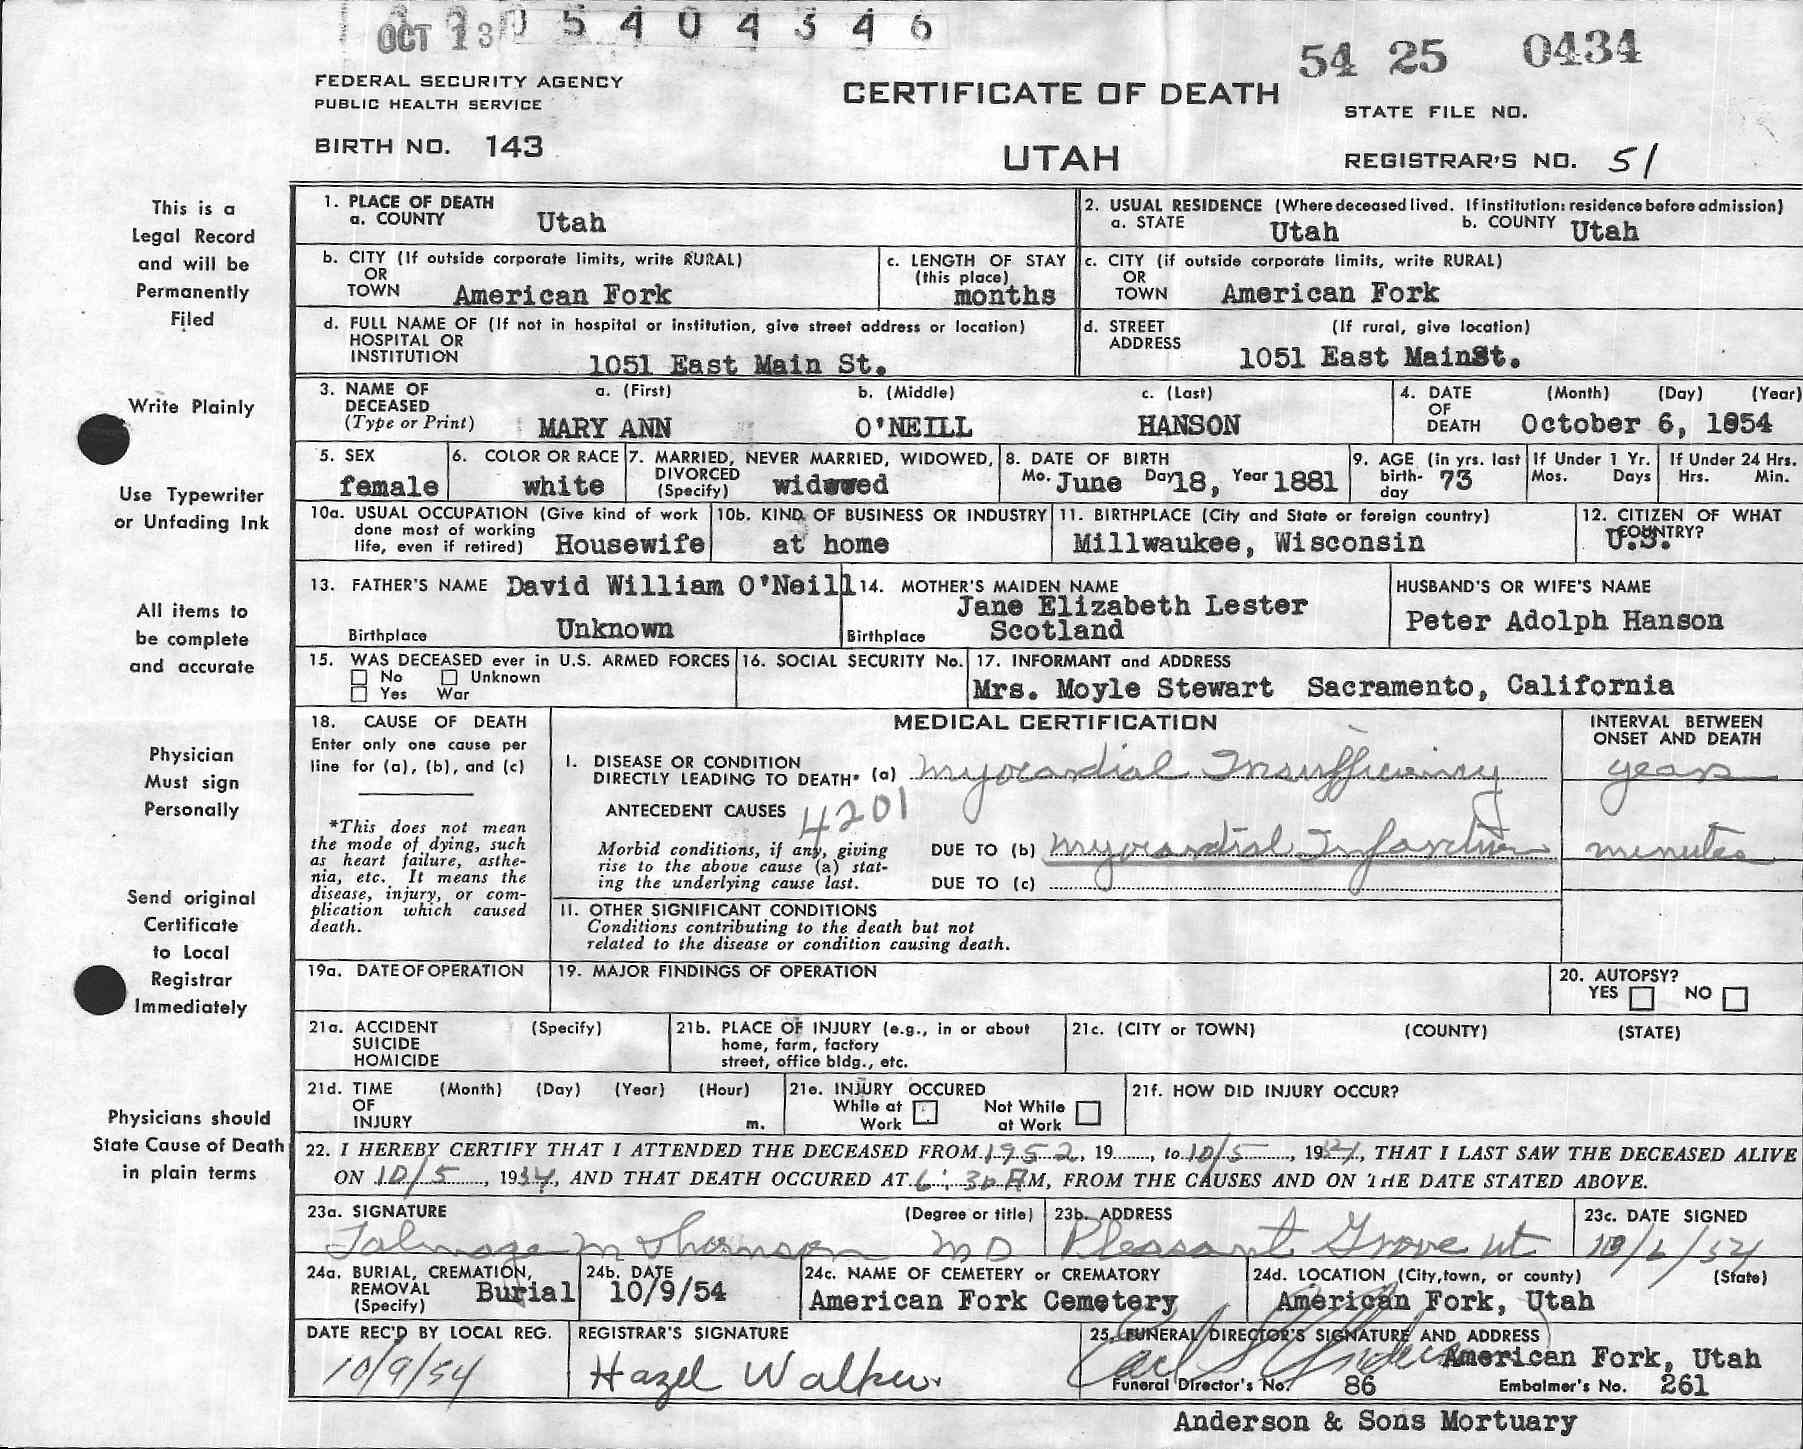 OCT 13
05404346
54 25 0434
FEDERAL SECURITY AGENCY
PUBLIC HEALTH SERVICE
CERTIFICATE OF DEATH
STATE FILE NO.
BIRTH NO. 143
UTAH
REGISTRAR'S NO. 51
This is a
Legal Record
and will be
Permanently
Filed
Write Plainly
Use Typewriter
or Unfading Ink
All items to
be complete
and accurate
Physician
Must sign
Personally
Send original
Certificate
to Local
Registrar
Immediately
Physicians should
State Cause of Death
in plain terms
1. PLACE OF DEATH
a. COUNTY Utah
2. USUAL RESIDENCE (Where deceased lived. If institution: residence before admission)
a. STATE Utah b. COUNTY Utah
b. CITY (If outside corporate limits, write RURAL)
OR
TOWN American Fork
c. LENGTH OF STAY
(this place)
months
c. CITY (if outside corporate limits, write RURAL)
OR
TOWN American Fork
d. FULL NAME OF (If not in hospital or institution, give street address or location)
HOSPITAL OR
INSTITUTION 1051 East Main St.
d. STREET (If rural, give location)
ADDRESS 1051 East MainSt.
3. NAME OF DECEASED
(Type or Print)
a. (First) b. (Middle) c. (Last)
MARY ANN O'NEILL HANSON
4. DATE OF DEATH (Month) (Day) (Year)
October 6, 1954
5. SEX
female
6. COLOR OR RACE
white
7. MARRIED, NEVER MARRIED, WIDOWED,
DIVORCED
(Specify) widowed
8. DATE OF BIRTH
Mo. June Day 18, Year 1881
9. AGE (in yrs. last
birth-
day 73
If Under 1 Yr.
Mos. Days
If Under 24 Hrs.
Hrs. Min.
10a. USUAL OCCUPATION (Give kind of work
done most of working
life, even if retired) Housewife
10b. KIND OF BUSINESS OR INDUSTRY
at home
11. BIRTHPLACE (City and State or foreign country)
Millwaukee, Wisconsin
12. CITIZEN OF WHAT
COUNTRY?
U.S.
13. FATHER'S NAME David William O'Neill
Birthplace Unknown
14. MOTHER'S MAIDEN NAME
Jane Elizabeth Lester
Birthplace Scotland
HUSBAND'S OR WIFE'S NAME
Peter Adolph Hanson
15. WAS DECEASED ever in U.S. ARMED FORCES
No Unknown
Yes War
16. SOCIAL SECURITY No.
17. INFORMANT and ADDRESS
Mrs. Moyle Stewart Sacramento, California
18. CAUSE OF DEATH
Enter only one cause per
line for (a), (b), and (c)
*This does not mean
the mode of dying, such
as heart failure, asthe-
nia, etc. It means the
disease, injury, or com-
plication which caused
death.
MEDICAL CERTIFICATION
INTERVAL BETWEEN
ONSET AND DEATH
I. DISEASE OR CONDITION
DIRECTLY LEADING TO DEATH* (a) Myocardial Insufficiency years
ANTECEDENT CAUSES 4201
Morbid conditions, if any, giving
rise to the above cause (a) stat-
ing the underlying cause last.
DUE TO (b) Myocardial Infarction minutes
DUE TO (c)
II. OTHER SIGNIFICANT CONDITIONS
Conditions contributing to the death but not
related to the disease or condition causing death.
19a. DATE OF OPERATION
19. MAJOR FINDINGS OF OPERATION
20. AUTOPSY?
YES NO
21a. ACCIDENT (Specify)
SUICIDE
HOMICIDE
21b. PLACE OF INJURY (e.g., in or about
home, farm, factory
street, office bldg., etc.
21c. (CITY or TOWN) (COUNTY) (STATE)
21d. TIME (Month) (Day) (Year) (Hour)
OF
INJURY m.
21e. INJURY OCCURED
While at Work Not While at Work
21f. HOW DID INJURY OCCUR?
22. I HEREBY CERTIFY THAT I ATTENDED THE DECEASED FROM 1952, 19......, to 10/5, 1954, THAT I LAST SAW THE DECEASED ALIVE
ON 10/5, 1954, AND THAT DEATH OCCURED AT 6:30 AM, FROM THE CAUSES AND ON THE DATE STATED ABOVE.
23a. SIGNATURE (Degree or title)
Talmage M Thomson MD
23b. ADDRESS
Pleasant Grove Ut
23c. DATE SIGNED
10/6/54
24a. BURIAL, CREMATION,
REMOVAL
(Specify) Burial
24b. DATE
10/9/54
24c. NAME OF CEMETERY or CREMATORY
American Fork Cemetery
24d. LOCATION (City, town, or county) (State)
American Fork, Utah
DATE REC'D BY LOCAL REG.
10/9/54
REGISTRAR'S SIGNATURE
Hazel Walker
25. FUNERAL DIRECTOR'S SIGNATURE AND ADDRESS
American Fork, Utah
Funeral Director's No. 86 Embalmer's No. 261
Anderson & Sons Mortuary